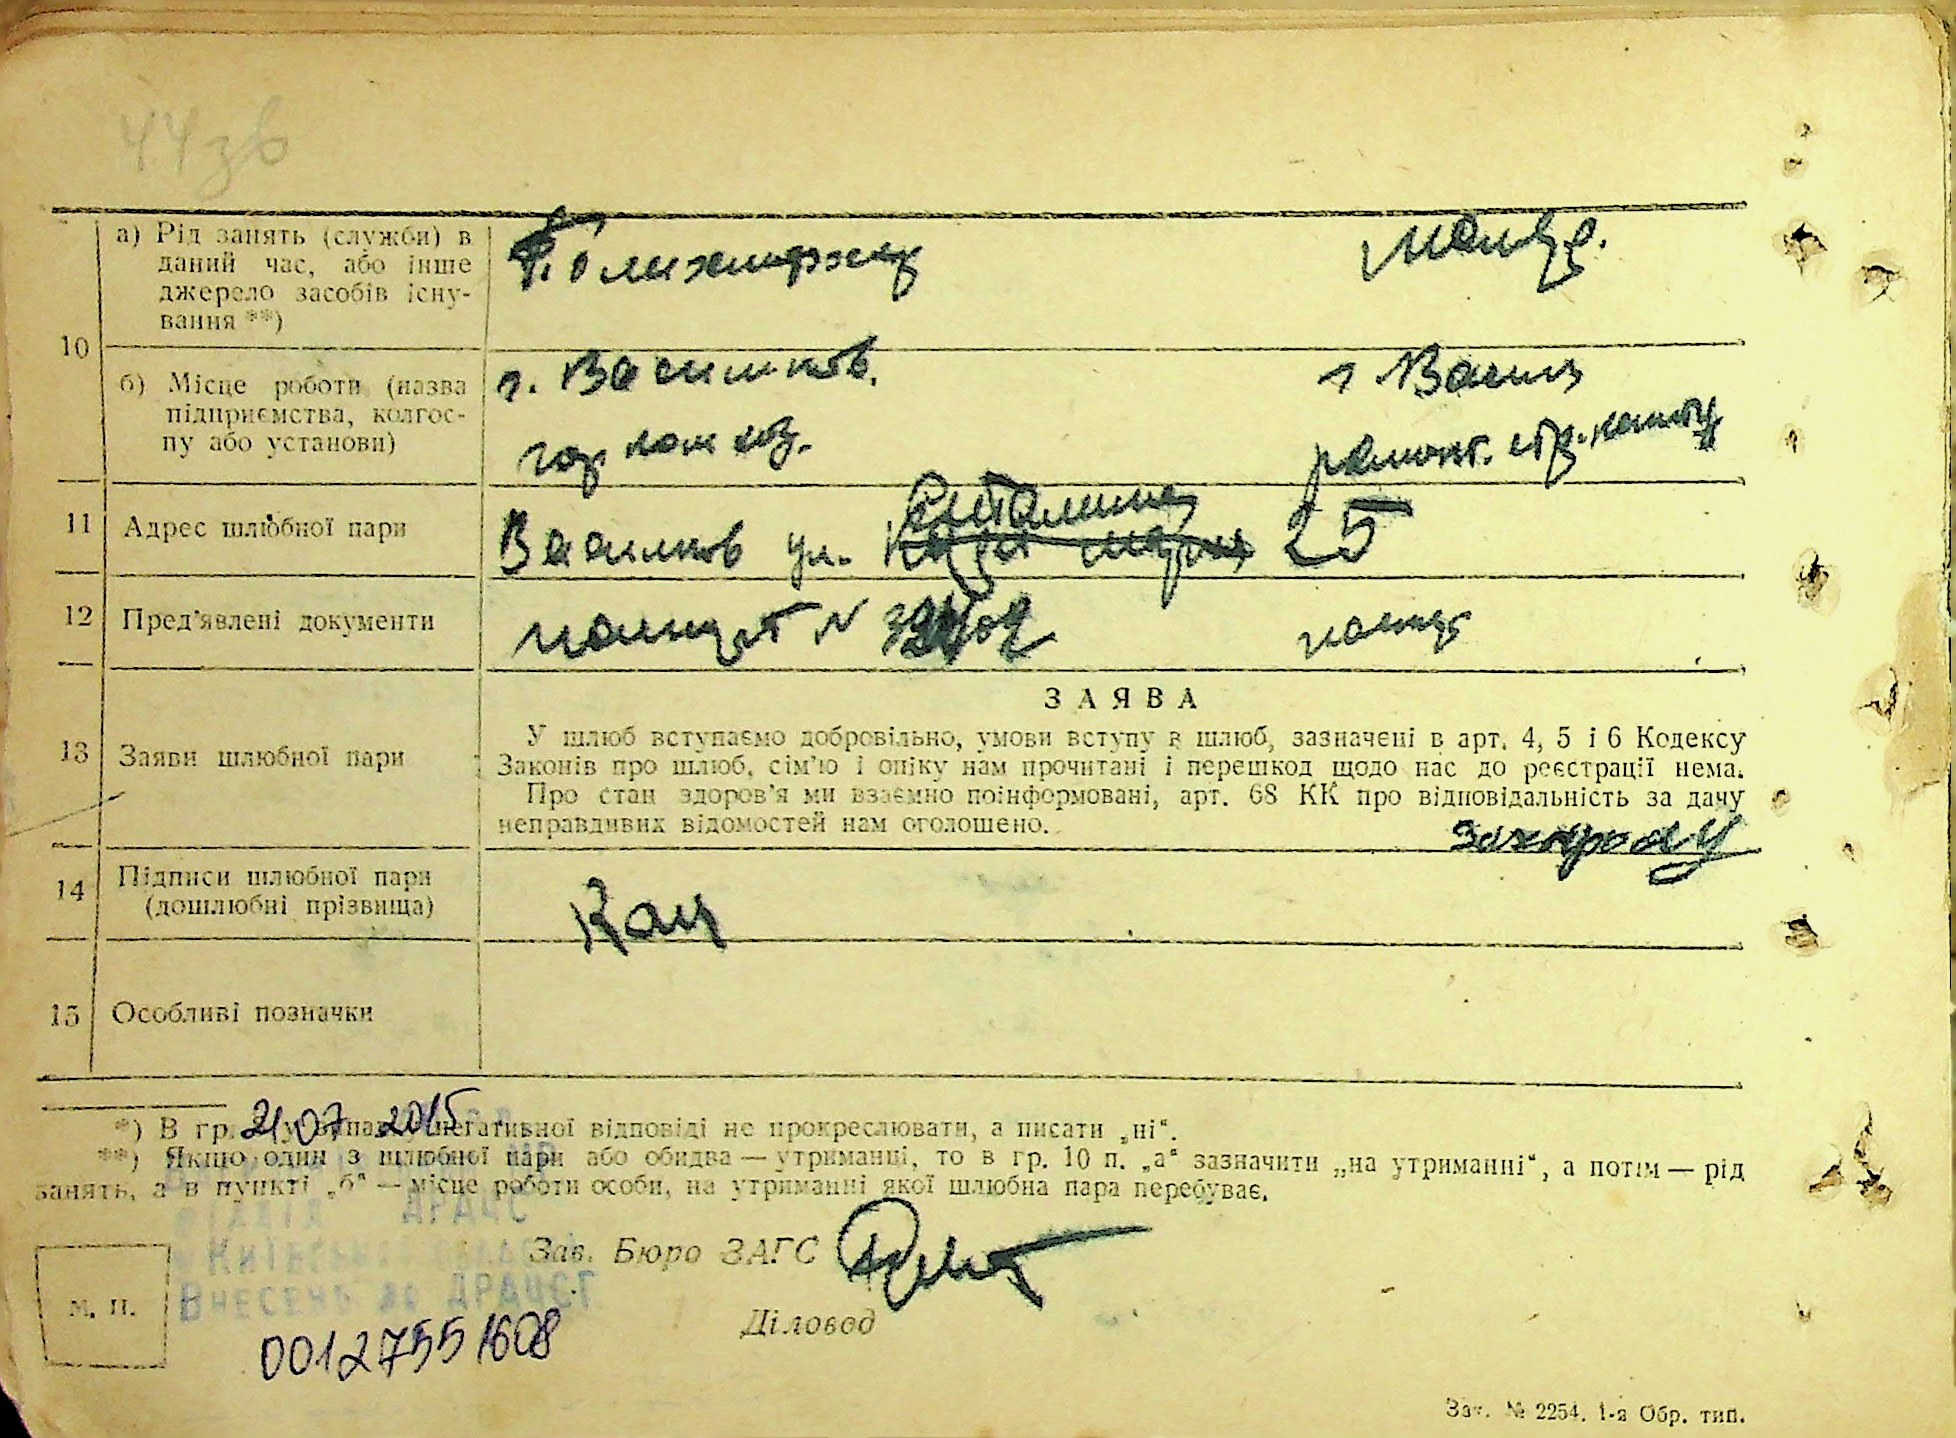 44зв
а) Рід занять (служби) в
даний час, або інше
джерело засобів існу-
вання **)
10
б) Місце роботи (назва
підприємства, колгос-
пу або установи)
г. Васильков.
г Васильк
ремонт. стр. контору
11 Адрес шлюбної пари
Васильков ул. Сталина 25
12 Пред'явлені документи
паспорт N
паспорт
ЗАЯВА
13 Заяви шлюбної пари
У шлюб вступаємо добровільно, умови вступу в шлюб, зазначені в арт. 4, 5 і 6 Кодексу
Законів про шлюб, сім'ю і опіку нам прочитані і перешкод щодо нас до реєстрації нема.
Про стан здоров'я ми взаємно поінформовані, арт. 68 КК про відповідальність за дачу
неправдивих відомостей нам оголошено.
14 Підписи шлюбної пари
(дошлюбні прізвища)
Кац
15 Особливі позначки
21 07 2015
*) В гр. у випадку негативної відповіді не прокреслювати, а писати „ні“.
**) Якщо один з шлюбної пари або обидва — утриманці, то в гр. 10 п. „а“ зазначити „на утриманні“, а потім — рід
занять, а в пункті „б“ — місце роботи особи, на утриманні якої шлюбна пара перебуває.
відділ ДРАЦС
Київської області
Внесено до ДРАЦСГ
00127551608
Зав. Бюро ЗАГС
Діловод
М. П.
Зат. № 2254. 1-а Обр. тип.